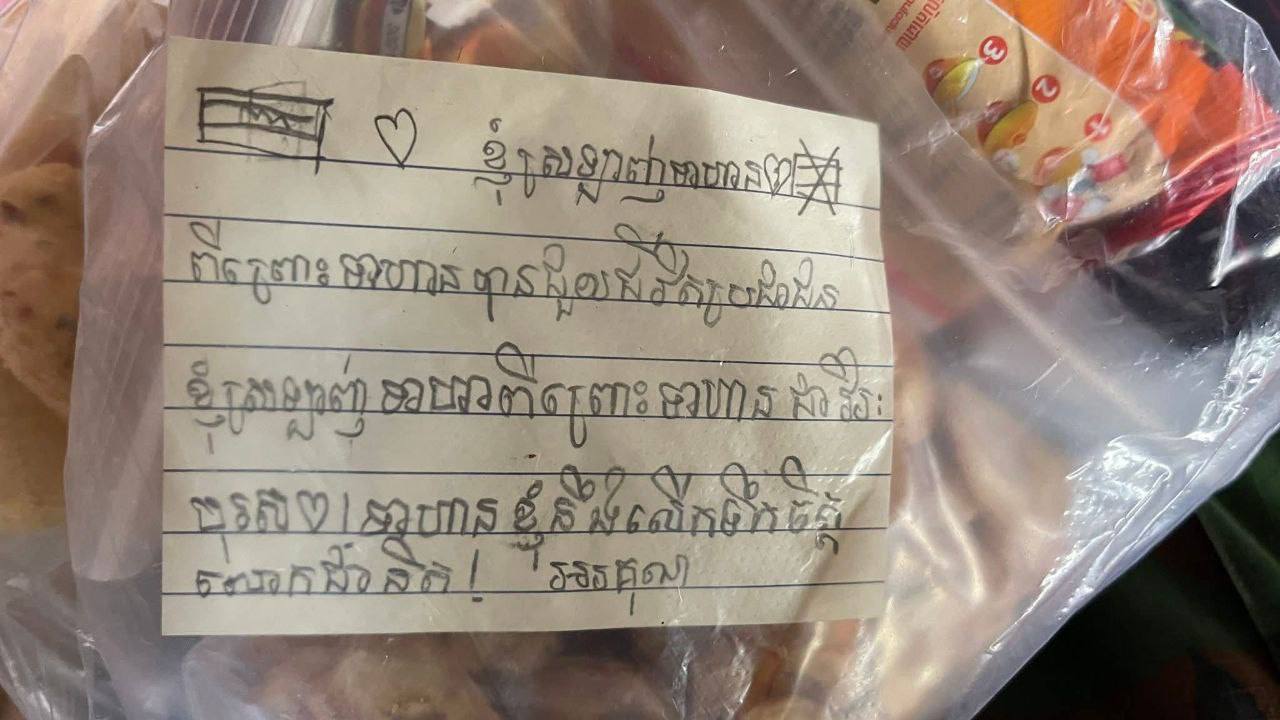 ខ្ញុំស្រឡាញ់ទាហាន
ពីព្រោះទាហានបានជួយជីវិតប្រជាជន
ខ្ញុំស្រឡាញ់ ទាហា ពីព្រោះ ទាហាន ជា វីរៈ
បុរស។ ទាហាន ខ្ញុំនឹងលើកទឹកចិត្ត
លោកជានិច! អរគុណ
3
2
1